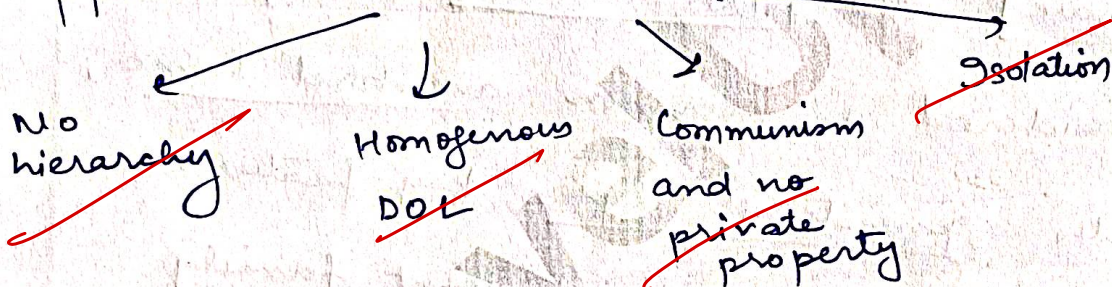 No
hierarchy
Homogenous
DOL
Communism
and no
private
property
Isolation